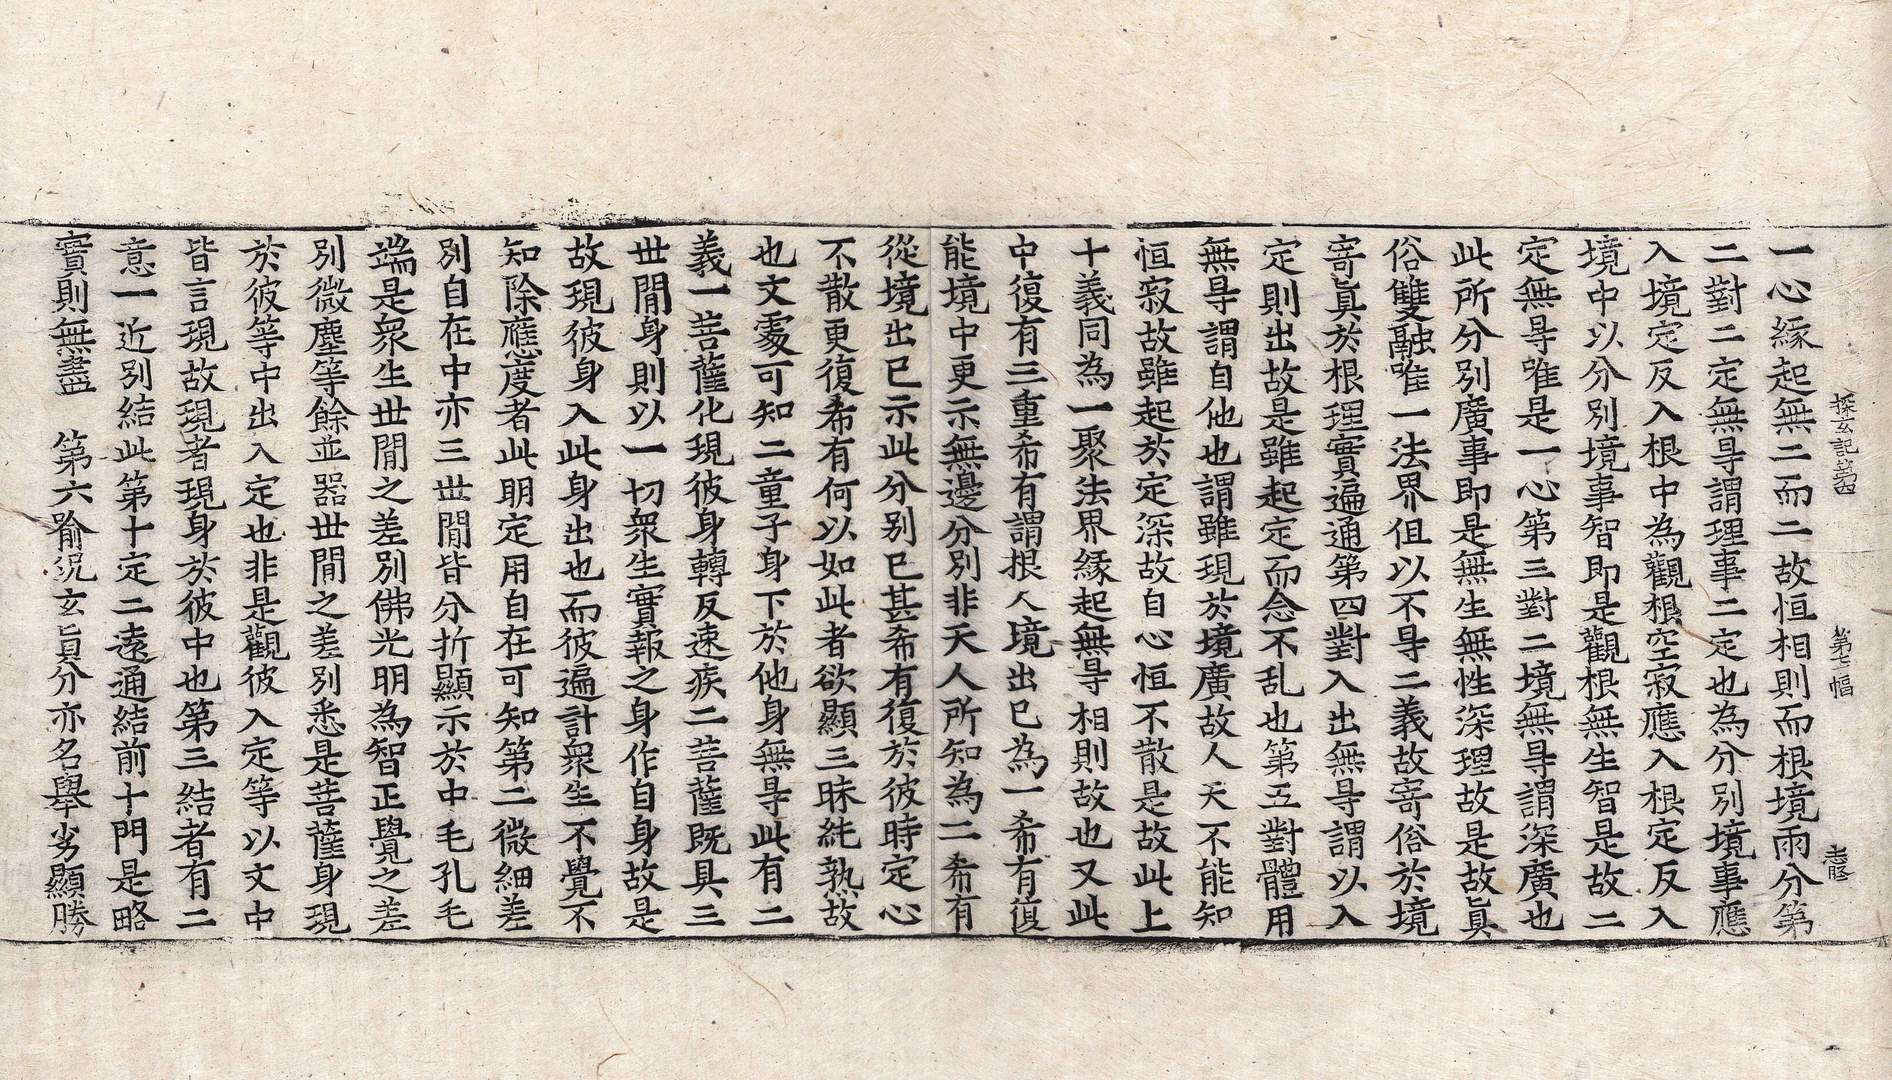 探玄記第四
一心緣起無二而二故恒相則而根境雨分第
二對二定無㝵謂理事二定也為分別境事應
入境定反入根中為觀根空寂應入根定反入
境中以分別境事智即是觀根無生智是故二
定無㝵唯是一心第三對二境無㝵謂深廣也
此所分別廣事即是無生無性深理故是故眞
俗雙融唯一法界伹以不㝵二義故寄俗於境
寄眞於根理實遍通第四對入出無㝵謂以入
定則出故是雖起定而念不乱也第五對體用
無㝵謂自他也謂雖現於境廣故人天不能知
恒寂故雖起於定深故自心恒不散是故此上
十義同為一聚法界緣起無㝵相則故也又此
中復有三重希有謂根人境出已為一希有復
能境中更示無邊分別非天人所知為二希有
從境出已示此分别已甚希有復於彼時定心
不散更復希有何以如此者欲顯三昧純熟故
也文處可知二童子身下於他身無㝵此有二
義一菩薩化現彼身轉反速疾二菩薩既具三
世閒身則以一切衆生實報之身作自身故是
故現彼身入此身出也而彼遍計衆生不覺不
知除應度者此明定用自在可知第二微細差
別自在中亦三世閒皆分折顯示於中毛孔毛
端是衆生世閒之差別佛光明為智正覺之差
別微塵等餘並器世閒之差別悉是菩薩身現
於彼等中出入定也非是觀彼入定等以文中
皆言現故現者現身於彼中也第三結者有二
意一近別結此第十定二遠通結前十門是略
實則無盡　第六喻況玄旨分亦名舉劣顯勝